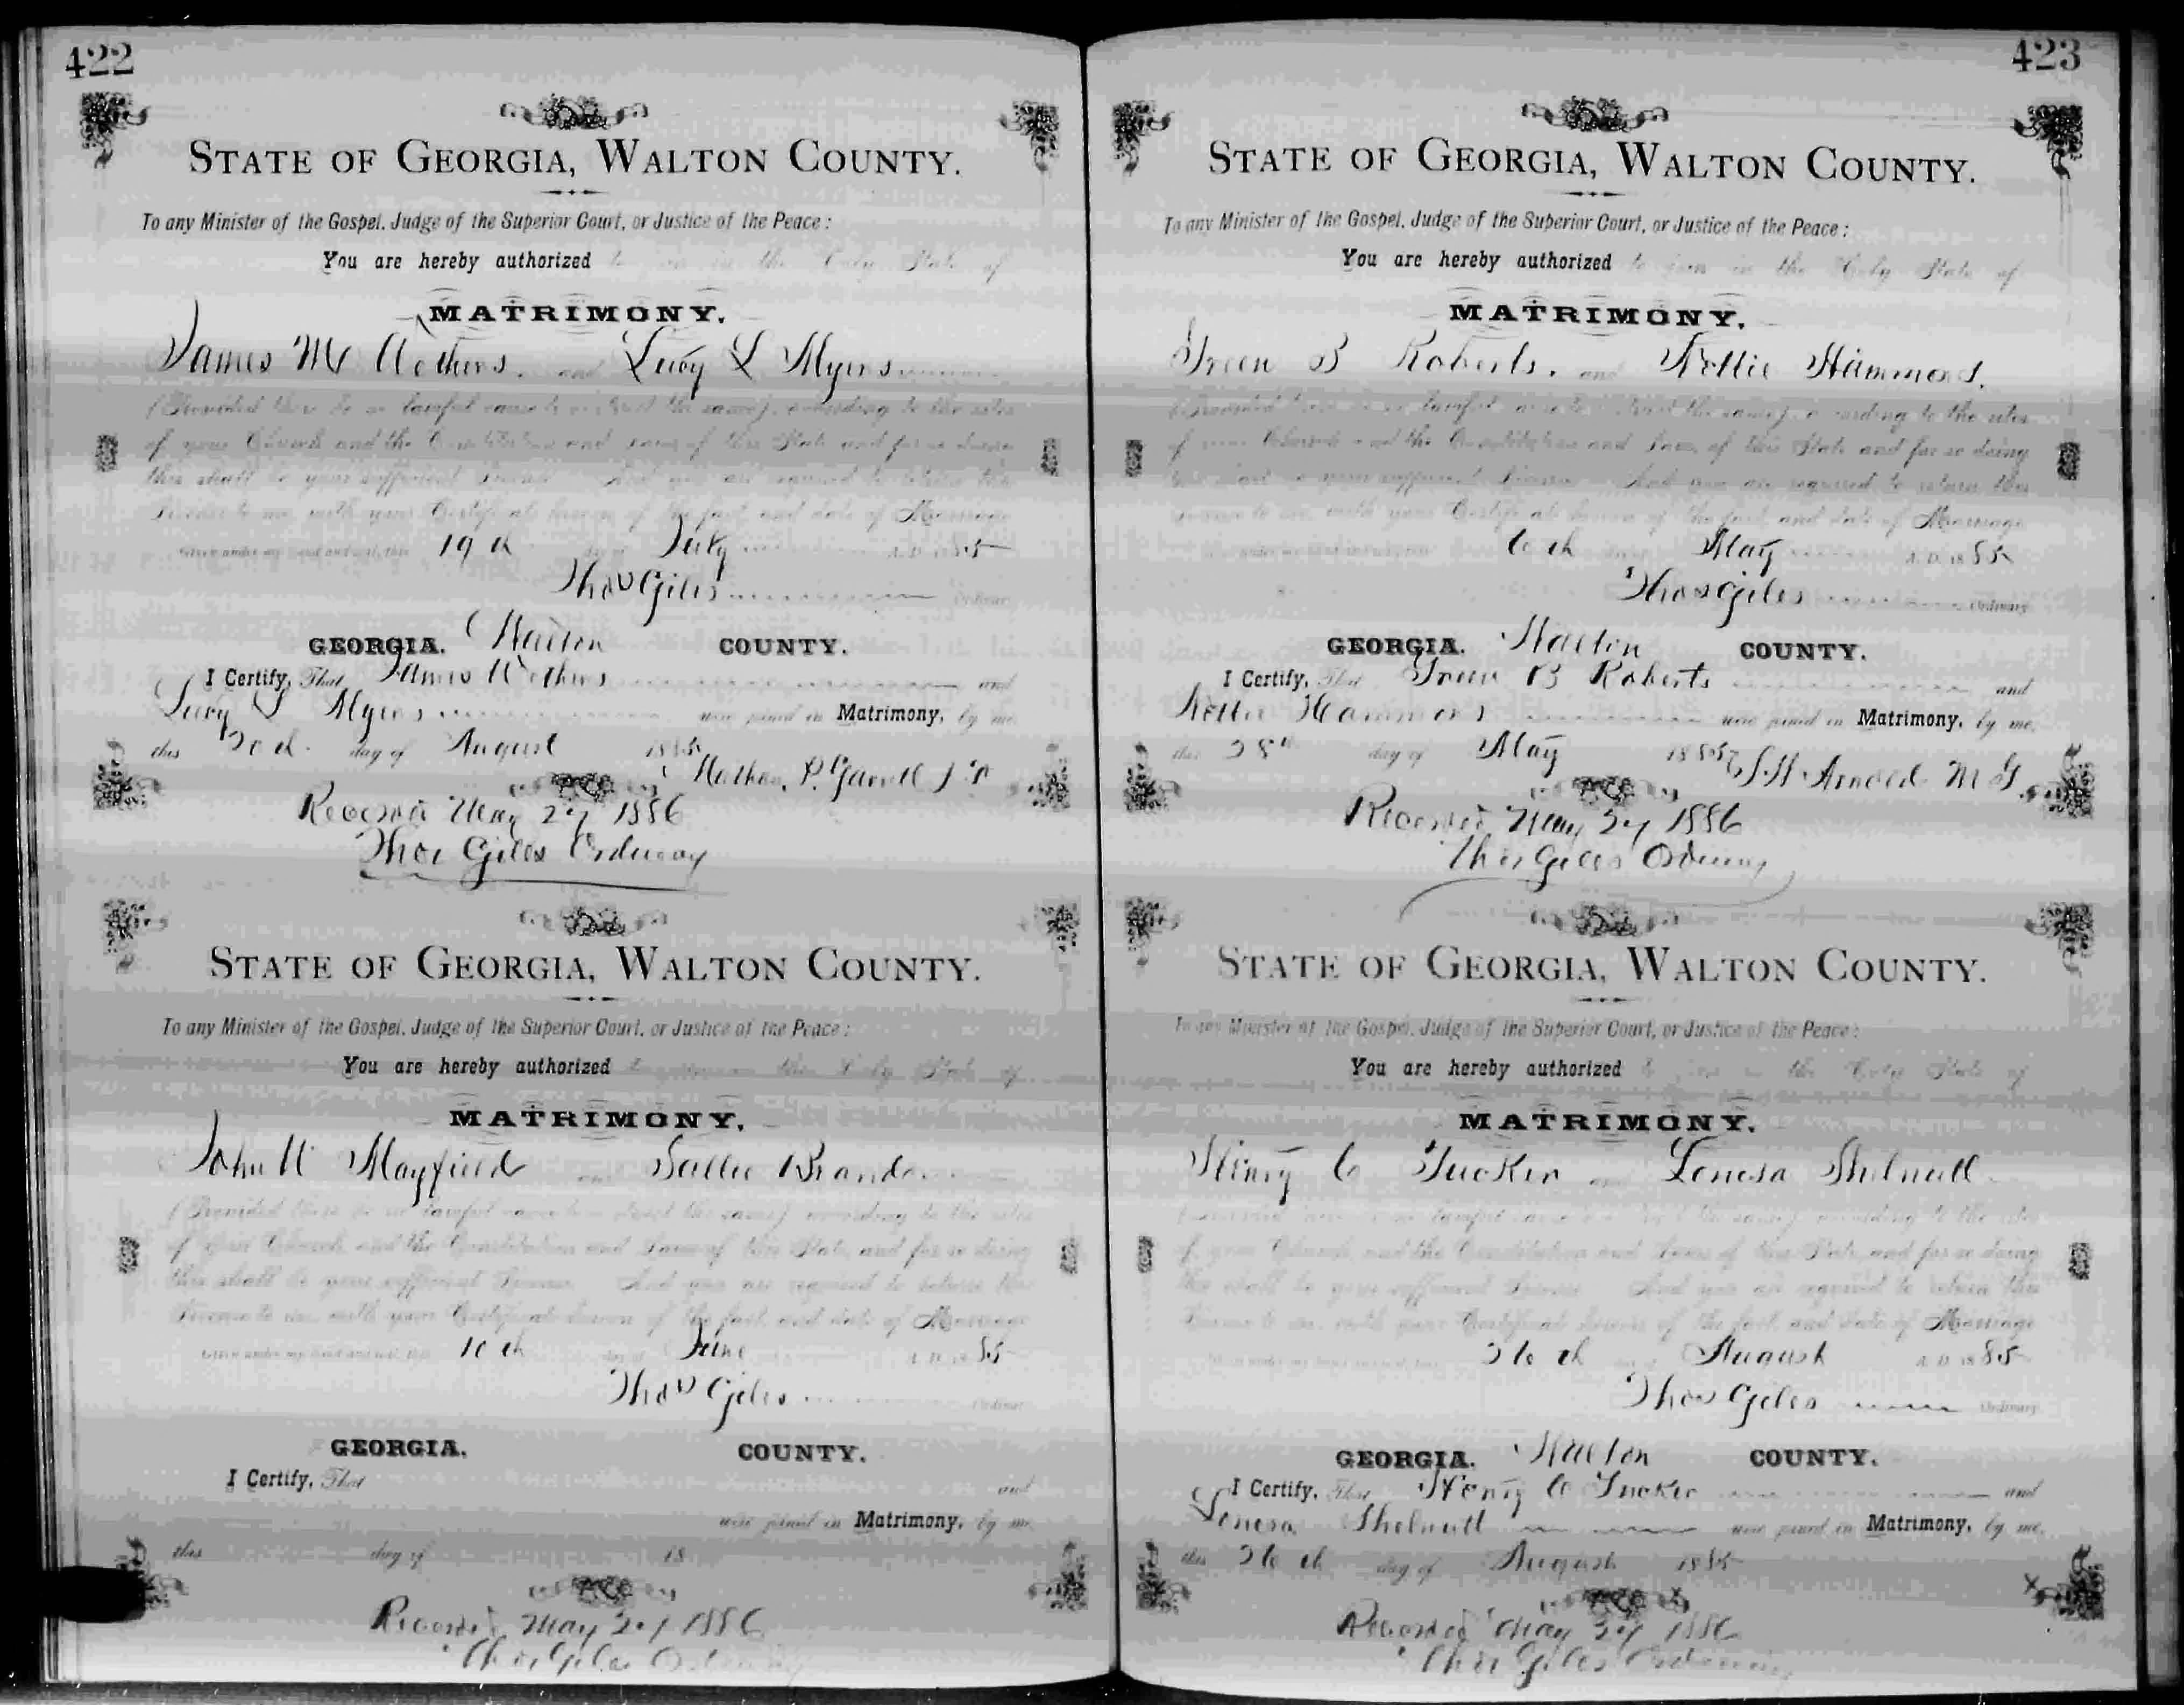 422
STATE OF GEORGIA, WALTON COUNTY.
To any Minister of the Gospel, Judge of the Superior Court, or Justice of the Peace:
You are hereby authorized to join in the Holy State of
MATRIMONY.
James M and Lucy L Myers
(Provided there be no lawful cause to obstruct the same), according to the rites
of your Church and the Constitution and Laws of this State and for so doing
this shall be your sufficient License And you are required to return this
License to me, with your Certificate hereon of the fact and date of Marriage
Given under my hand and seal, this 19th day of July A.D. 1885
Thos Giles
Ordinary
GEORGIA. Walton COUNTY.
I Certify, That James and
Lucy L Myers were joined in Matrimony, by me,
this 20th day of August 1885
Recorded May 27 1886
Thos Giles Ordinary
STATE OF GEORGIA, WALTON COUNTY.
To any Minister of the Gospel, Judge of the Superior Court, or Justice of the Peace:
You are hereby authorized to join in the Holy State of
MATRIMONY.
John W Mayfield and Sallie
(Provided there be no lawful cause to obstruct the same) according to the rites
of your Church and the Constitution and Laws of this State and for so doing
this shall be your sufficient License And you are required to return this
License to me, with your Certificate hereon of the fact and date of Marriage
Given under my hand and seal, this 10th day of June A.D. 1885
Thos Giles
Ordinary
GEORGIA. COUNTY.
I Certify, That and
were joined in Matrimony, by me,
this day of 18
Recorded May 27 1886
Thos Giles Ordinary
423
STATE OF GEORGIA, WALTON COUNTY.
To any Minister of the Gospel, Judge of the Superior Court, or Justice of the Peace:
You are hereby authorized to join in the Holy State of
MATRIMONY.
Green B Roberts. and Nettie Hammond.
(Provided there be no lawful cause to obstruct the same), according to the rites
of your Church and the Constitution and Laws of this State and for so doing
this shall be your sufficient License And you are required to return this
License to me, with your Certificate hereon of the fact and date of Marriage
Given under my hand and seal, this 6th day of May A.D. 1885
Thos Giles Ordinary
GEORGIA. Walton COUNTY.
I Certify, That Green B Roberts and
Nettie were joined in Matrimony, by me,
this 28th day of May 1885 Arnold M G.
Recorded May 27 1886
Thos Giles Ordinary
STATE OF GEORGIA, WALTON COUNTY.
To any Minister of the Gospel, Judge of the Superior Court, or Justice of the Peace:
You are hereby authorized to join in the Holy State of
MATRIMONY.
Henry C Tucker and Lenora Shelnutt
(Provided there be no lawful cause to obstruct the same) according to the rites
of your Church and the Constitution and Laws of this State and for so doing
this shall be your sufficient License And you are required to return this
License to me, with your Certificate hereon of the fact and date of Marriage
Given under my hand and seal, this 26th day of August A.D. 1885
Thos Giles Ordinary
GEORGIA. Walton COUNTY.
I Certify, That Henry C Tucker and
Lenora Shelnutt were joined in Matrimony, by me,
this 26th day of August 1885
Recorded May 27 1886
Thos Giles Ordinary